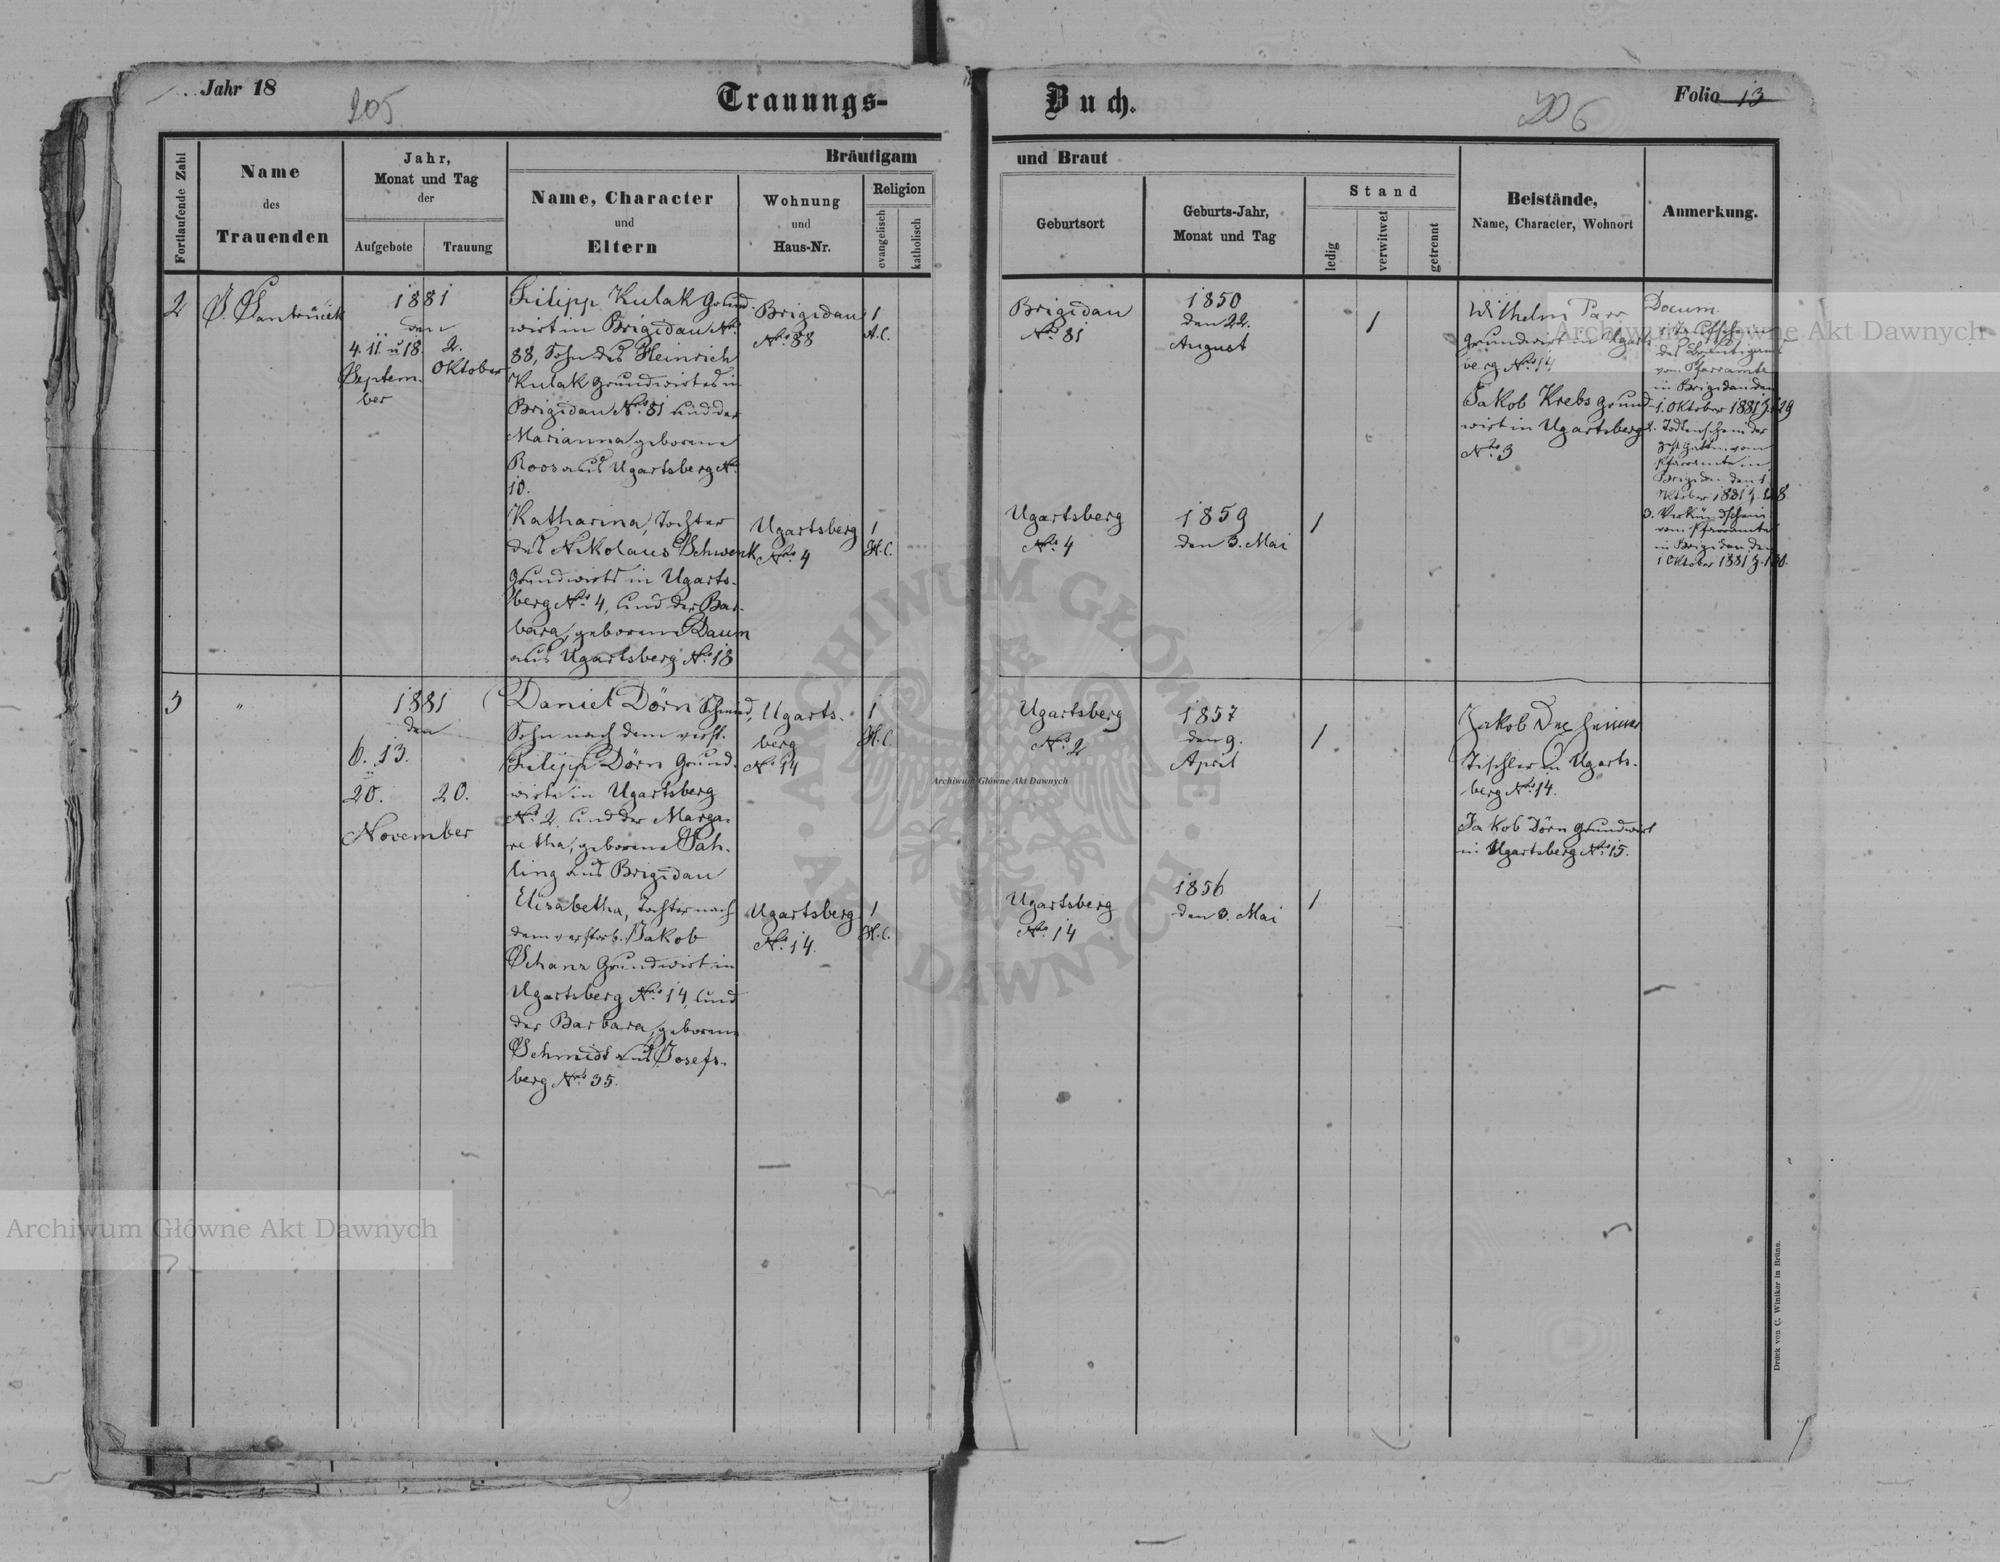 Jahr 18
205
Trauungs-
Buch.
206
Folio 13
Fortlaufende Zahl
Name
des
Trauenden
Jahr,
Monat und Tag
der
Aufgebote
Trauung
Bräutigam
Name, Character
und
Eltern
Wohnung
und
Haus-Nr.
Religion
evangelisch
katholisch
und Braut
Geburtsort
Geburts-Jahr,
Monat und Tag
Stand
ledig
verwitwet
getrennt
Beistände,
Name, Character, Wohnort
Anmerkung.
2
1881
den
4. 11. u 18.
Septem-
ber
2.
Oktober
Filipp Kulak Grund-
wirt in Brigidau No.
88, Sohn des Heinrich
Kulak Grundwirtes in
Brigidau No. 81 und der
Marianna geborene
Roos aus Ugartsberg No.
10.
Brigidau
No. 88
1
A.C.
Brigidau
No. 81
1850
den 22.
August
1
Wilhelm Parr
Grundwirt in Ugarts-
berg No. 14
Jakob Krebs Grund-
wirt in Ugartsberg
No. 3
Docum.
des Bräutigams
vom Pfarramte
in Brigidau den
1. Oktober 1881
2. Todtenschein der
vom
Pfarramte in
Brigidau den 1.
Oktober 1881
3. Verkündschein
vom Pfarramte
in Brigidau den
1 Oktober 1881
Katharina, Tochter
des Nikolaus Schwenk
Grundwirts in Ugarts-
berg No. 4, und der Bar-
bara, geborene Daum
aus Ugartsberg No. 18
Ugartsberg
No. 4
1
H.C.
Ugartsberg
No. 4
1859
den 3. Mai
1
3
"
1881
den
6. 13.
u
20.
20.
November
Daniel Dörn Schmied,
Sohn nach dem verst.
Filipp Dörn Grund-
wirts in Ugartsberg
No. 2, und der Marga-
retha, geborene Sah-
ling aus Brigidau
Ugarts-
berg
No. 14
1
H.C.
Ugartsberg
No. 2
1857
den 9.
April
1
Jakob
Tischler in Ugarts-
berg No. 14.
Jakob Dörn Grundwirt
in Ugartsberg No. 15.
Elisabetha, Tochter nach
dem verstorb. Jakob
Schanz Grundwirt in
Ugartsberg No. 14, und
der Barbara, geborene
Schmidt aus Josefs-
berg No. 35.
Ugartsberg
No. 14.
1
H.C.
Ugartsberg
No. 14
1856
den 3. Mai
1
Druck von C. Winiker in Brünn.
Archiwum Główne Akt Dawnych
Archiwum Główne Akt Dawnych
Archiwum Główne Akt Dawnych
ARCHIWUM GŁÓWNE · AKT DAWNYCH ·